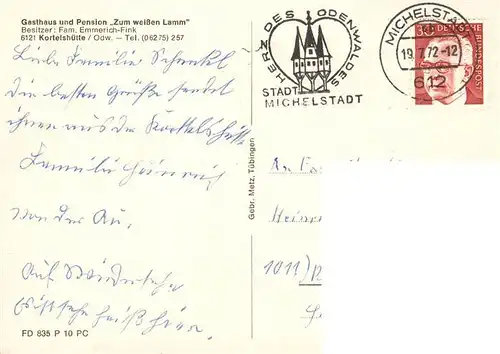 Gasthaus und Pension „Zum weißen Lamm"
Besitzer: Fam. Emmerich-Fink
6121 Kortelshütte / Odw. — Tel. (06275) 257
Liebe Familie
die besten Grüße sendet
ihnen aus der
Familie Heinrich
von der Au.
Auf Wiedersehn
FD 835 P 10 PC
Gebr. Metz, Tübingen
HERZ DES ODENWALDES
STADT
MICHELSTADT
MICHELSTADT
19.7.72-12
612
30 DEUTSCHE BUNDESPOST
An Fam
Heinr
1011)